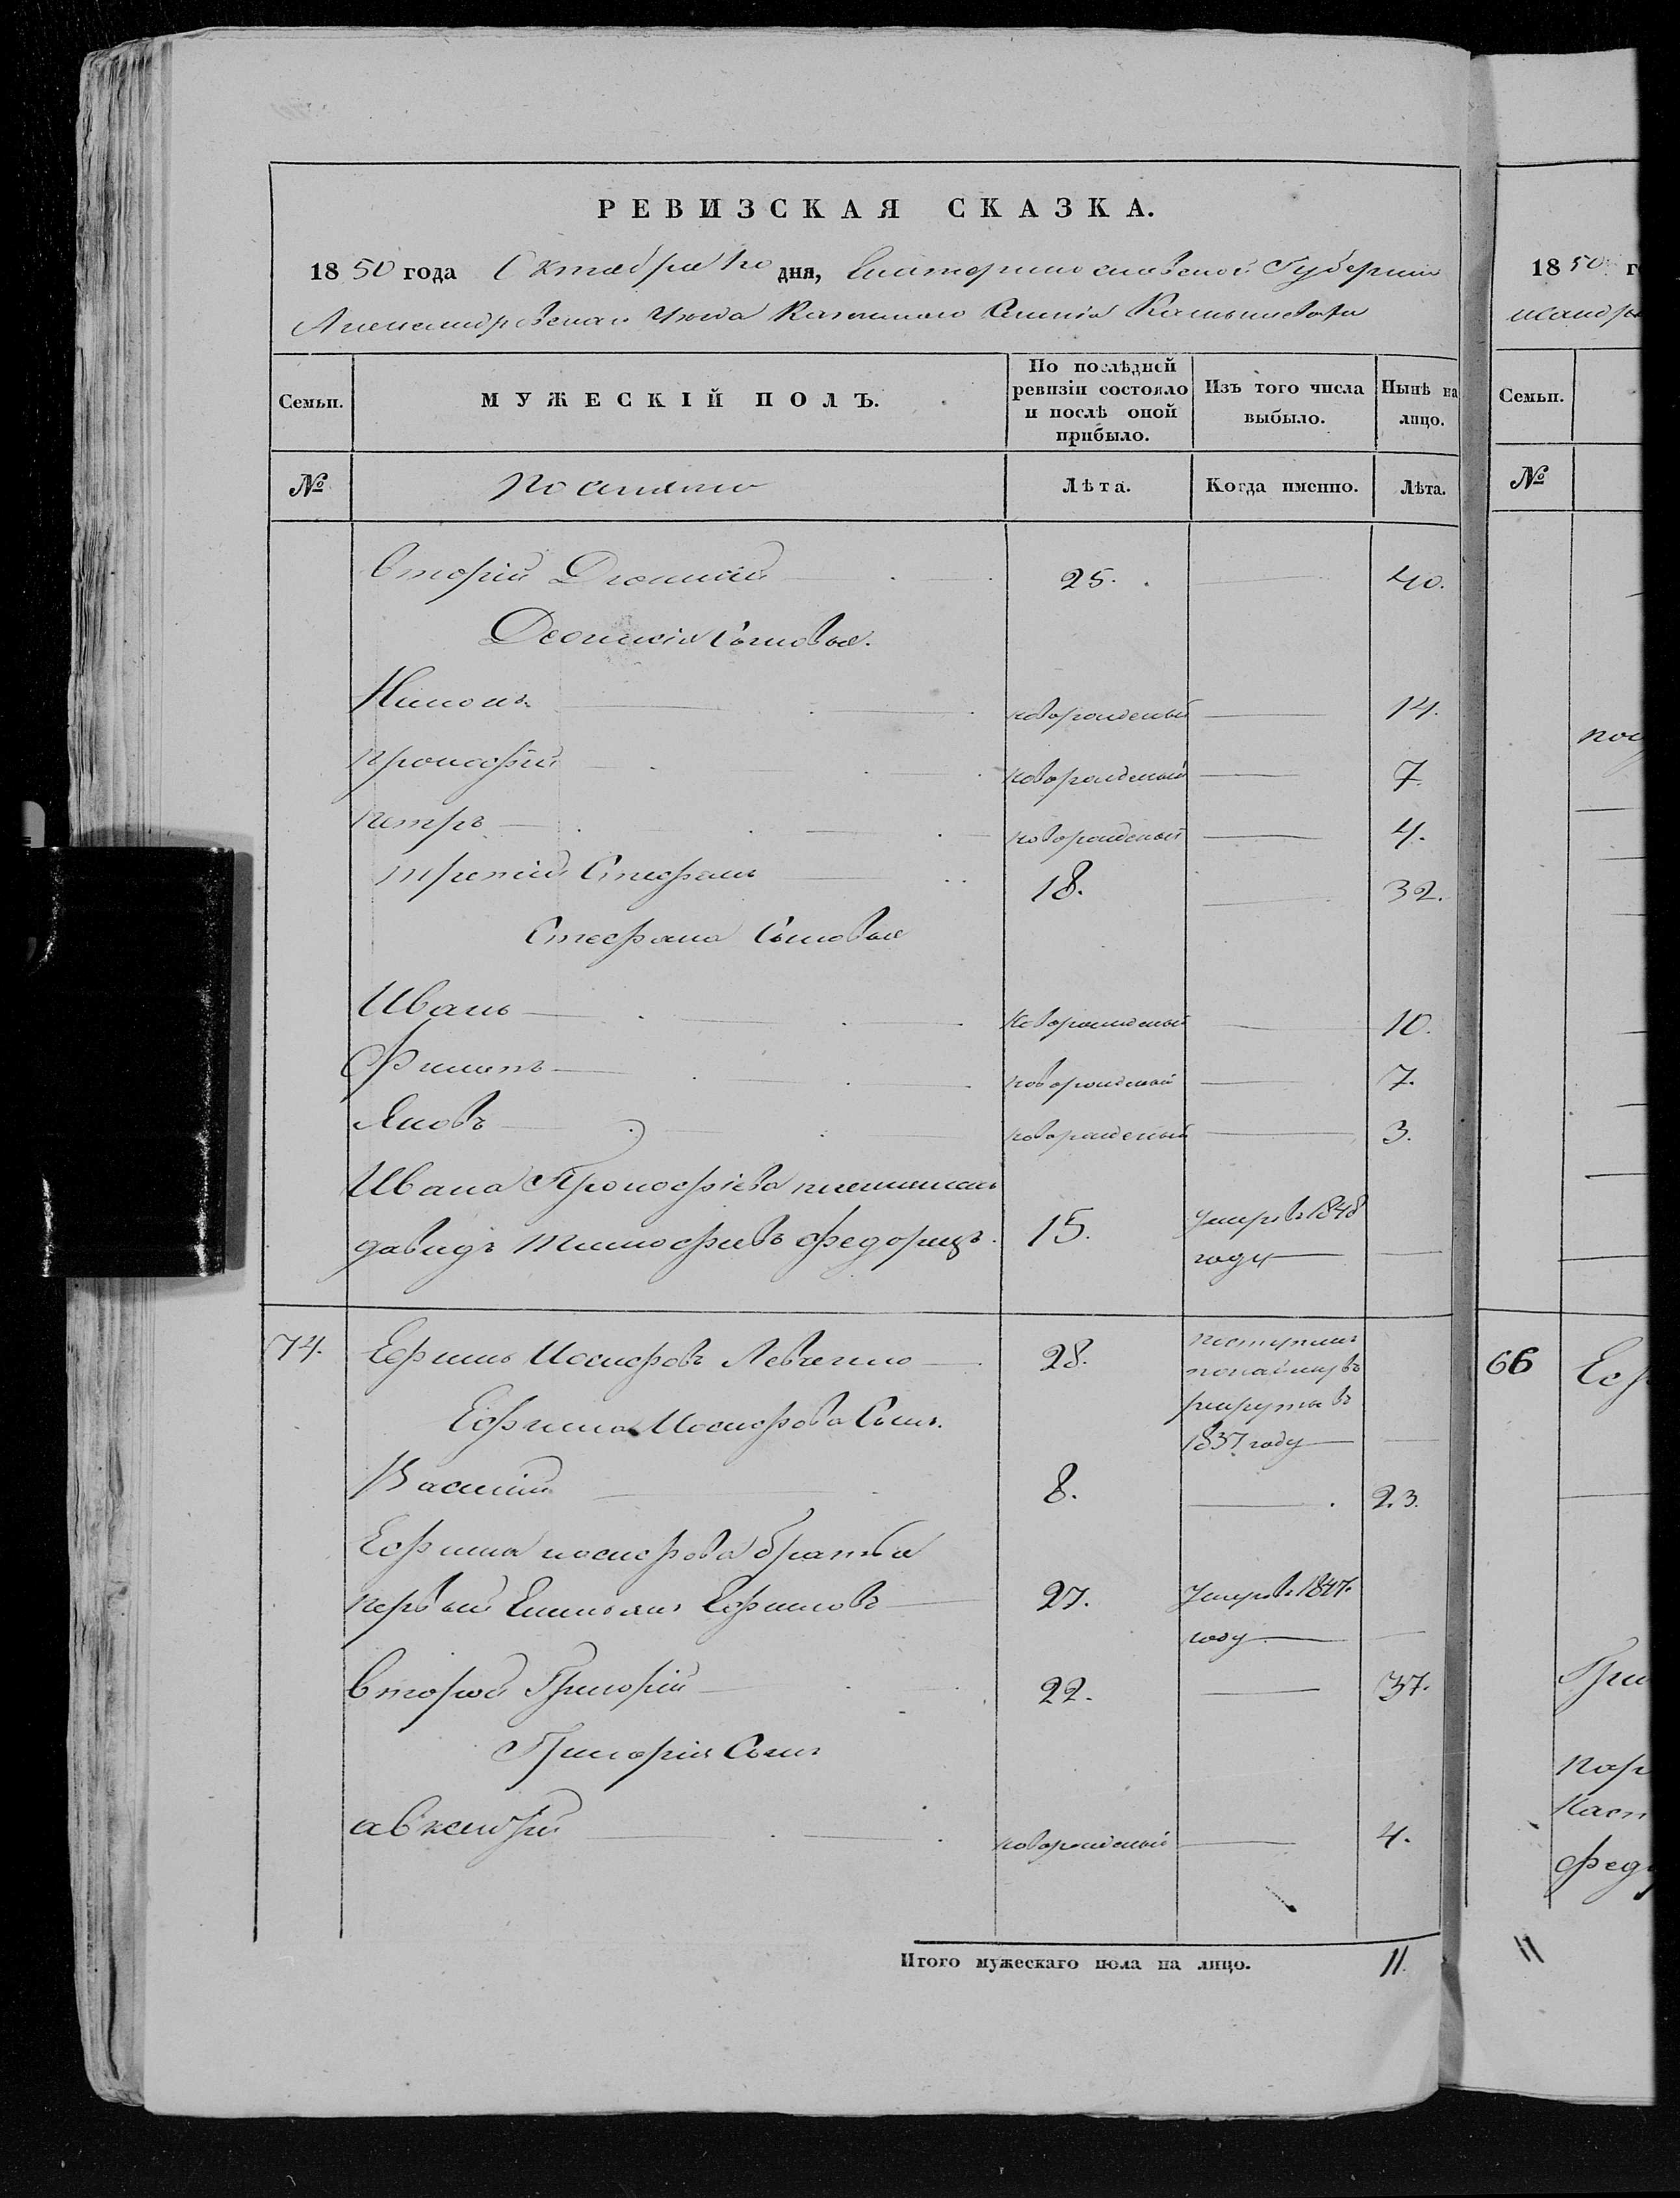 РЕВИЗСКАЯ СКАЗКА.
1850 года Октября дня, Екатеринославской Губернии
Александровскаго Уезда Казеннаго Селенія
Семьи.
МУЖЕСКІЙ ПОЛЪ.
По послѣдней ревизіи состояло и послѣ оной прибыло.
Изъ того числа выбыло.
Нынѣ на лицо.
№
Лѣта.
Когда именно.
Лѣта.
вторій Дионисій 25. 40.
Деонисія Сыновья.
новорожденый 14.
прокофій новорожденый 7.
петръ новорожденый 4.
третій Стефанъ 18. 32.
Стефана Сыновья
Иванъ новорожденый 10.
Филипъ новорожденый 7.
Яковъ новорожденый 3.
Ивана Прокофіева племянникъ
давидъ Тимофіевъ 15. Умеръ въ 1848
году
74. Ефимъ Иосифовъ Левченко 28.
рекруты въ
Ефима Иосифова Сынъ.
1837 году
Василій 8. 23.
Ефима иосифова братья
первый Емельянъ Ефимовъ 27. Умеръ въ 1847.
году
второй Григорій 22. 37.
Григорія Сынъ
авксентій новорожденый 4.
Итого мужескаго пола на лицо. 11.
1850 г
Семьи.
№
66 Еф
Гри
11